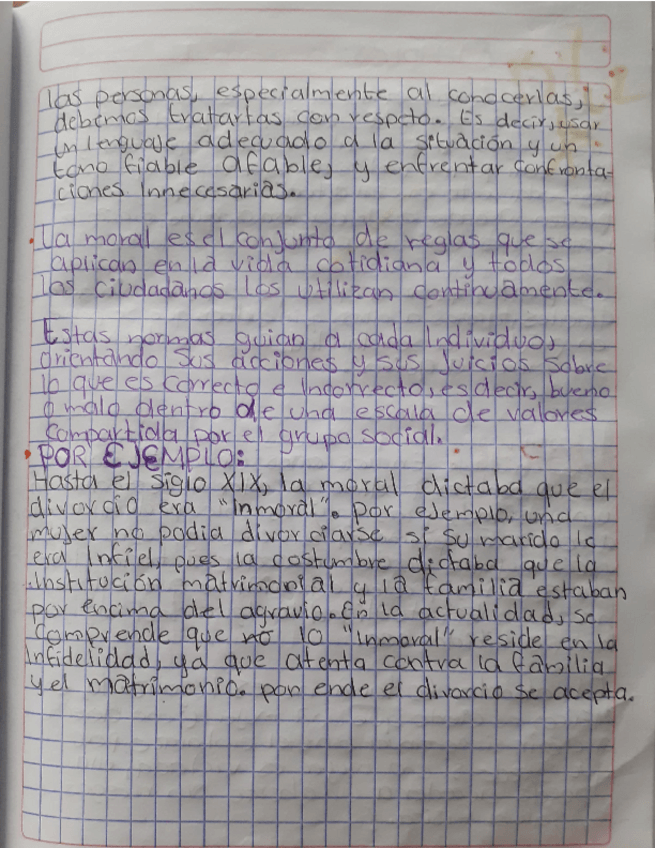 las personas, especialmente al conocerlas,
debemos tratarlas con respeto. Es decir, usar
un lenguaje adecuado a la situación y un
tono fiable afable, y enfrentar confronta-
ciones innecesarias.
La moral es el conjunto de reglas que se
aplican en la vida cotidiana y todos
los ciudadanos los utilizan continuamente.
Estas normas guian a cada individuo,
orientando sus acciones y sus juicios sobre
lo que es correcto e incorrecto, es decir, bueno
o malo dentro de una escala de valores
compartida por el grupo social.
POR EJEMPLO:
Hasta el siglo XIX, la moral dictaba que el
divorcio era "inmoral". Por ejemplo, una
mujer no podia divorciarse si su marido le
era infiel, pues la costumbre dictaba que la
institución matrimonial y la familia estaban
por encima del agravio. En la actualidad, se
comprende que no lo "inmoral" reside en la
infidelidad, ya que atenta contra la fabilia
y el matrimonio. por ende el divorcio se acepta.